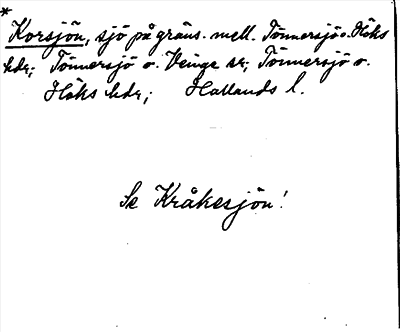 *
Korsjön, sjö på gräns. mell. Tönnersjö o. Höks
hdr; Tönnersjö o. Veinge sr; Tönnersjö o.
Höks hdr; Hallands l.
Se Kråkesjön!